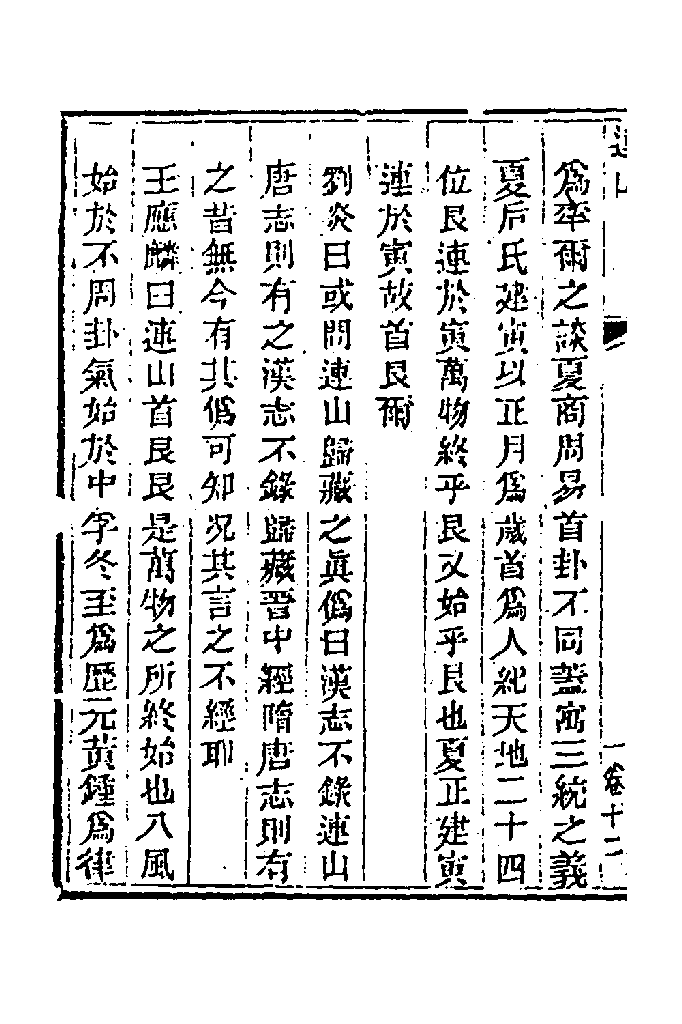 連山
一卷十二
爲率爾之談夏商周易首卦不同蓋寓三統之義
夏后氏建寅以正月爲歲首爲人紀天地二十四
位艮連於寅萬物終乎艮又始乎艮也夏正建寅
連於寅故首艮爾
劉炎曰或問連山歸藏之眞僞曰漢志不錄連山
唐志則有之漢志不錄歸藏晉中經隋唐志則有
之昔無今有其僞可知況其言之不經耶
王應麟曰連山首艮艮是萬物之所終始也八風
始於不周卦氣始於中孚冬至爲歷元黃鍾爲律